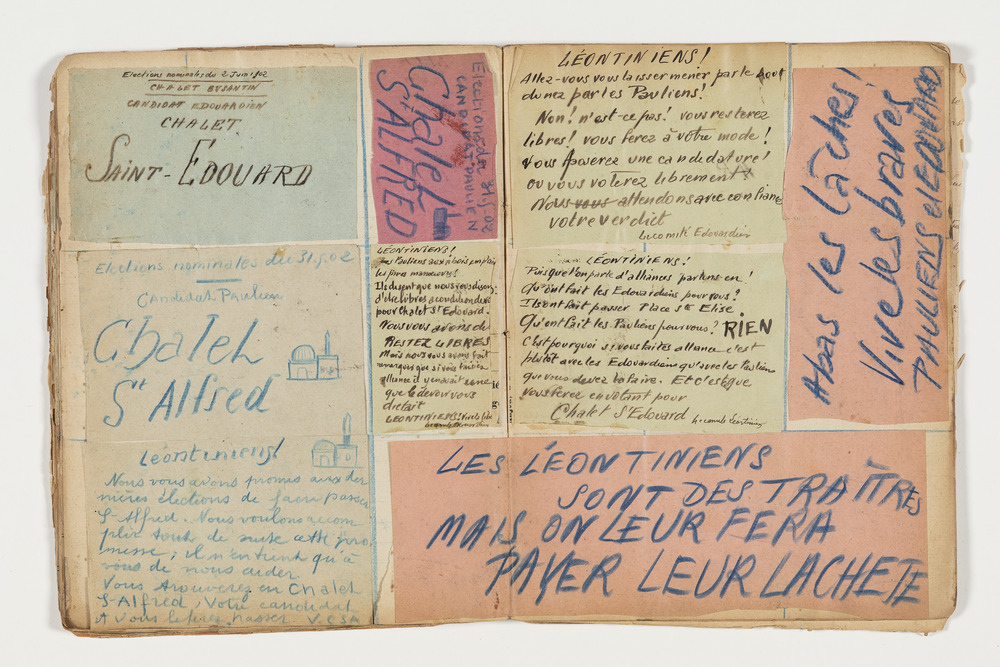 Elections nominales du 2 Juin 1902
CHALET BUSANTIN
CANDIDAT EDOUARDIEN
CHALET
SAINT-EDOUARD
Elections nominales du 31.5.02
Candidat Paulien
Chalet
St Alfred
Léontiniens!
Nous vous avons promis aux der
nières élections de faire passer
St-Alfred. Nous voulons accom
plir tout de suite cette pro
messe; il n'en tient qu'à
vous de nous aider
Vous trouverez en Chalet
St-Alfred, votre candidat
et vous le ferez passer V.C.S.A
Election du 31.5.02
CANDIDAT PAULIEN
Chalet
St ALFRED
LÉONTINIENS!
Les Pauliens
Ils disent que nous vous disons
d'être libres a condition de
pour Chalet St Edouard.
Nous vous avons dit
RESTEZ LIBRES
Mais nous vous avons fait
remarquer que si vous faisiez
alliance il y en avait une
que le devoir vous
dictait
LEONTINIENS!
LÉONTINIENS!
Allez-vous vous laisser mener par le bout
du nez par les Pauliens!
Non! n'est-ce pas! vous resterez
libres! vous ferez à votre mode!
Vous poserez une candidature!
ou vous voterez librement!
Nous vous attendons avec confiance
votre verdict
Le comité Edouardien
LÉONTINIENS!
Puisque l'on parle d'alliances parlons en!
Qu'ont fait les Edouardiens pour vous?
Ils ont fait passer Place Ste Elise.
Qu'ont fait les Pauliens pour vous? RIEN
C'est pourquoi si vous faites alliance c'est
plutôt avec les Edouardiens qu'avec les Pauliens
que vous devez la faire. Et c'est que
vous ferez en votant pour
Chalet St Edouard
Abas les lâches!
Vive les braves
PAULIENS et EDOUARD
LES LÉONTINIENS
SONT DES TRAÎTRES
MAIS ON LEUR FERA
PAYER LEUR LACHETE